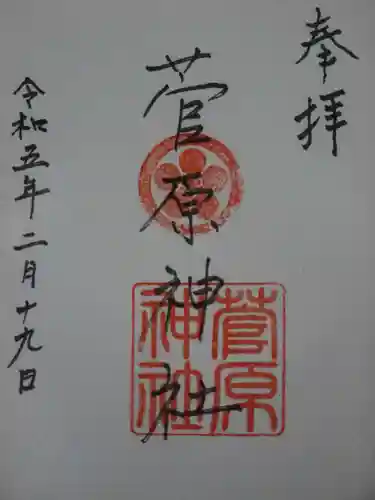 奉拝
菅原神社
菅原神社
令和五年二月十九日